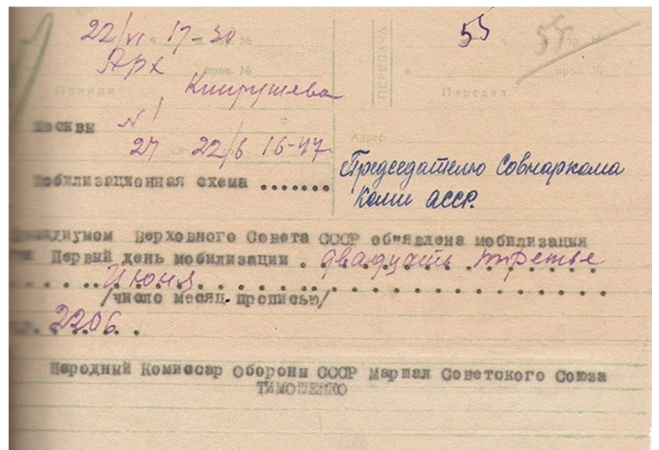 22/VI 17-30 55 55
Арх
ПЕРЕДАЧА
Принял Кипрушева Передал
Москвы №1 Адрес
27 22/6 16-47
мобилизационная схема ....... Председателю Совнаркома
Коми АССР.
Президиумом Верховного Совета СССР объявлена мобилизация
Первый день мобилизации . двадцать третье
Июня
/число месяц прописью/
2206
Народный Комиссар Обороны СССР Маршал Советского Союза
ТИМОШЕНКО